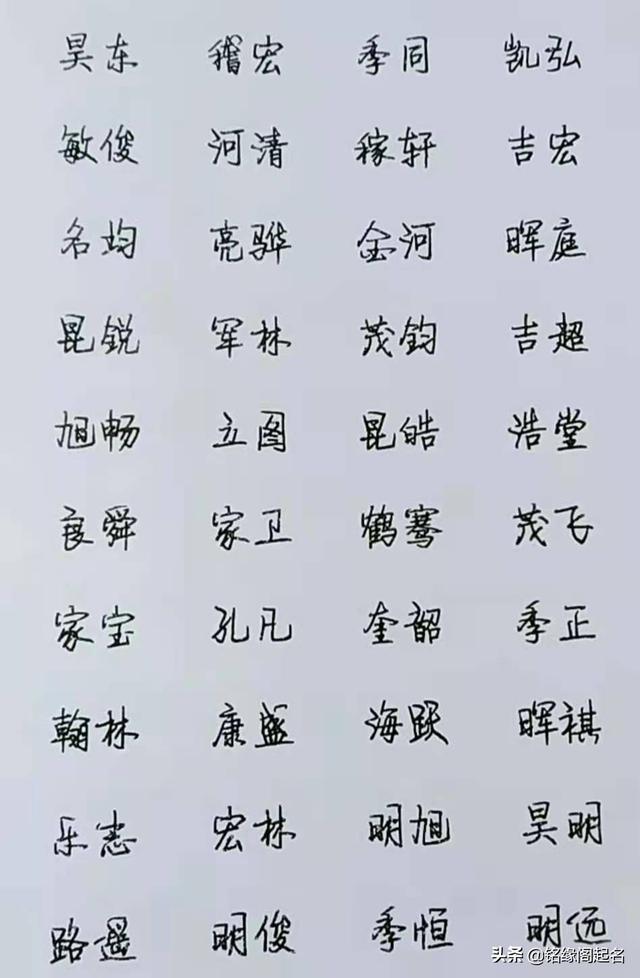 昊东 稽宏 季同 凯弘
敏俊 河清 稼轩 吉宏
名均 亮骅 金河 晖庭
昆锐 军林 茂钧 吉超
旭畅 立图 昆皓 浩堂
良舜 家卫 鹤骞 茂飞
家宝 孔凡 奎韶 季正
翰林 康盛 海跃 晖祺
乐志 宏林 明旭 昊明
路遥 明俊 季恒 明远
头条 @铭缘阁起名